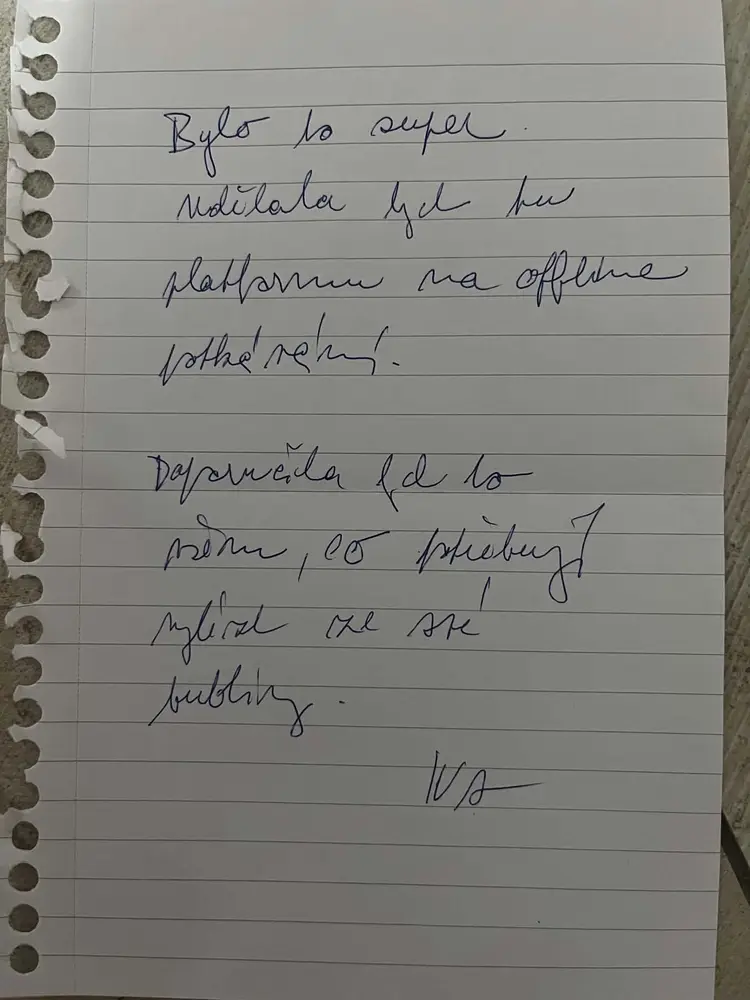 Bylo to super.
Udělala bych tu
platformu na offline
potkávání.
Doporučila bych to
všem, co potřebují
vylézt ze své
bubliny.
IVA